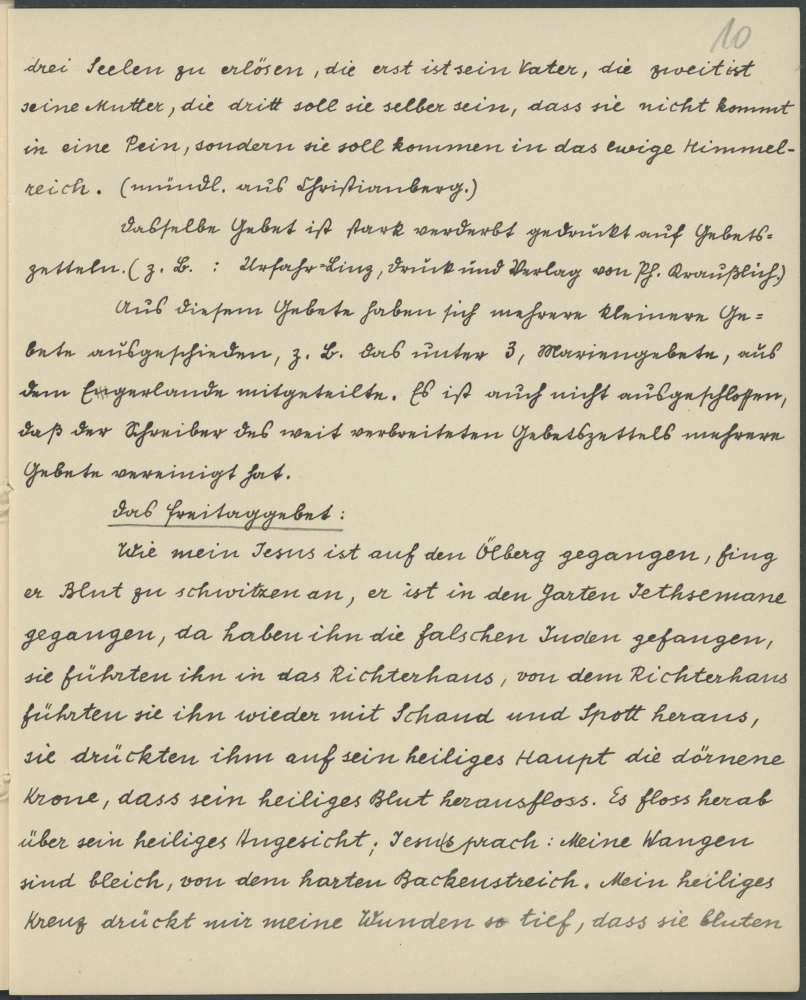 10
drei Seelen zu erlösen, die erst ist sein Vater, die zweit ist
seine Mutter, die dritt soll sie selber sein, dass sie nicht kommt
in eine Pein, sondern sie soll kommen in das ewige Himmel-
reich. (mündl. aus Christianberg.)
Dasselbe Gebet ist stark verderbt gedruckt auf Gebets=
zetteln. (z. B. : Urfahr-Linz, Druck und Verlag von Ph. Kraußlich.)
Aus diesem Gebete haben sich mehrere kleinere Ge=
bete ausgeschieden, z. B. das unter 3, Mariengebete, aus
dem Egerlande mitgeteilte. Es ist auch nicht ausgeschlossen,
daß der Schreiber des weit verbreiteten Gebetszettels mehrere
Gebete vereinigt hat.
Das Freitaggebet:
Wie mein Jesus ist auf den Ölberg gegangen, fing
er Blut zu schwitzen an, er ist in den Garten Jethsemane
gegangen, da haben ihn die falschen Juden gefangen,
sie führten ihn in das Richterhaus, von dem Richterhaus
führten sie ihn wieder mit Schand und Spott heraus,
sie drückten ihm auf sein heiliges Haupt die dörnene
Krone, dass sein heiliges Blut herausfloss. Es floss herab
über sein heiliges Angesicht; Jesus sprach: Meine Wangen
sind bleich, von dem harten Backenstreich. Mein heiliges
Kreuz drückt mir meine Wunden so tief, dass sie bluten